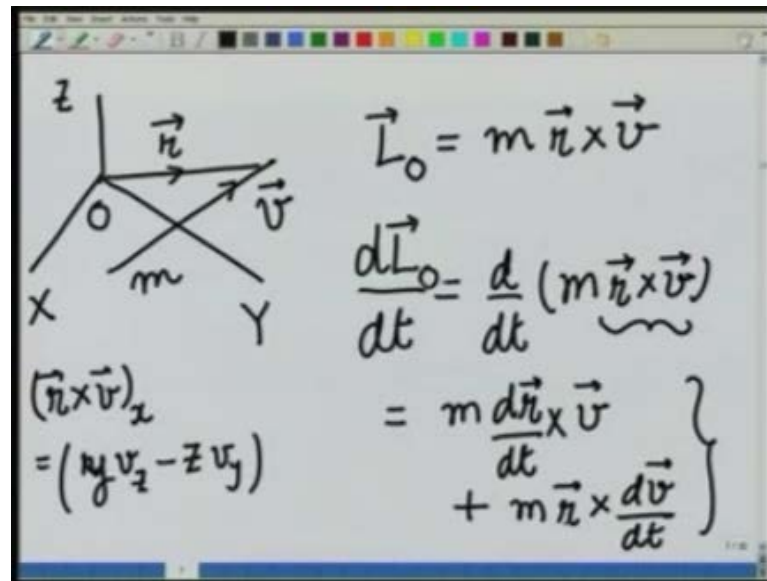 Z
r⃗
O
v⃗
m
X
Y
(r⃗×v⃗)ₓ
= (y v_z − z v_y)
L⃗_O = m r⃗×v⃗
dL⃗_O/dt = d/dt (m r⃗×v⃗)
= m dr⃗/dt × v⃗
+ m r⃗ × dv⃗/dt